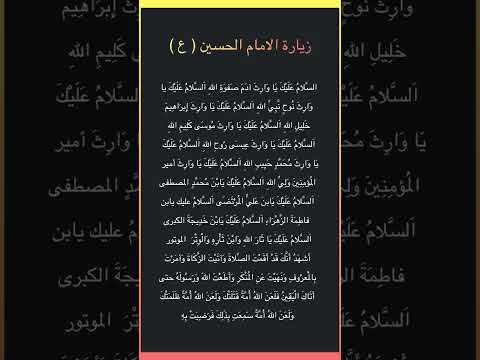 زيارة الامام الحسين ( ع )
السلامُ عَلَيْكَ يَا وَارِثَ ادَمَ صَفوَةِ اللهِ اَلسَّلامُ عَلَيْكَ يا
وَارِثَ نُوحٍ نَّبِيِّ اللهِ اَلسَّلامُ عَلَيْكَ يَا وَارِثَ إِبرَاهِيمَ
خَلِيلِ اللهِ اَلسَّلامُ عَلَيْكَ يَا وَارِثَ مُوسَى كَلِيمِ اللهِ
اَلسَّلامُ عَلَيْكَ يَا وَارِثَ عِيسَى رُوحِ اللهِ اَلسَّلامُ عَلَيْكَ
يَا وَارِثَ مُحَمَّدٍ حَبِيبِ اللهِ اَلسَّلامُ عَلَيْكَ يَا وَارِثَ أمير
المُؤمِنِينَ وَلِيِّ اللهِ اَلسَّلامُ عَلَيْكَ يَابْنَ مُحَمَّدٍ المصطفى
اَلسَّلامُ عَلَيْكَ يَابنَ عَلِيٍّ الْمُرْتَضَى اَلسَّلامُ عليك يابن
فاطِمَةَ الزَّهْرَاءِ اَلسَّلامُ عَلَيْكَ يَابْنَ خَدِيجَةَ الكبرى
اَلسَّلامُ عَلَيْكَ يَا ثَارَ اللهِ وَابْنَ ثَأْرِهِ وَالْوِتْرَ الموتور
أشهَدُ أنَّكَ قَدْ أقَمْتَ الصَّلاةَ وَآتَيْتَ الزَّكَاةَ وَأمَرْتَ
بِالْمَعرُوفِ وَنَهَيْتَ عَنِ المُنْكَرِ وَأطَعْتَ اللهَ وَرَسُولَهُ حتى
أتَاكَ اليَقِينُ فَلَعَنَ اللهُ أمَّةً قَتَلَتْكَ وَلَعَنَ اللهُ أمَّةً ظَلَمَتْكَ
وَلَعَنَ اللهُ أمَّةً سَمِعَتْ بِذلِكَ فَرَضِيَتْ بِهِ